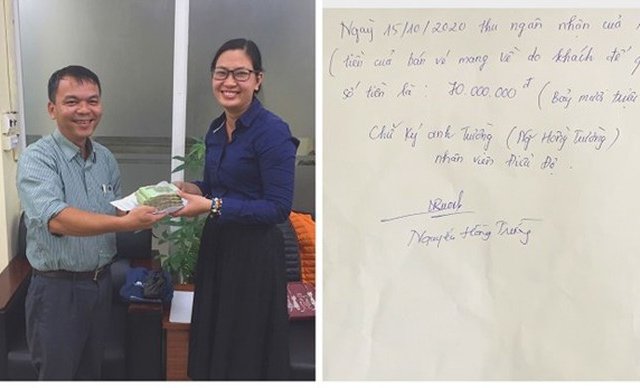 Ngày 15/10/2020 thu ngân nhận của
(tiền của bán vé mang về do khách để
số tiền là : 70.000.000đ (Bảy mươi triệu
Chữ ký anh Trường (Ng Hồng Trường)
nhân viên Điều độ.
Nguyễn Hồng Trường